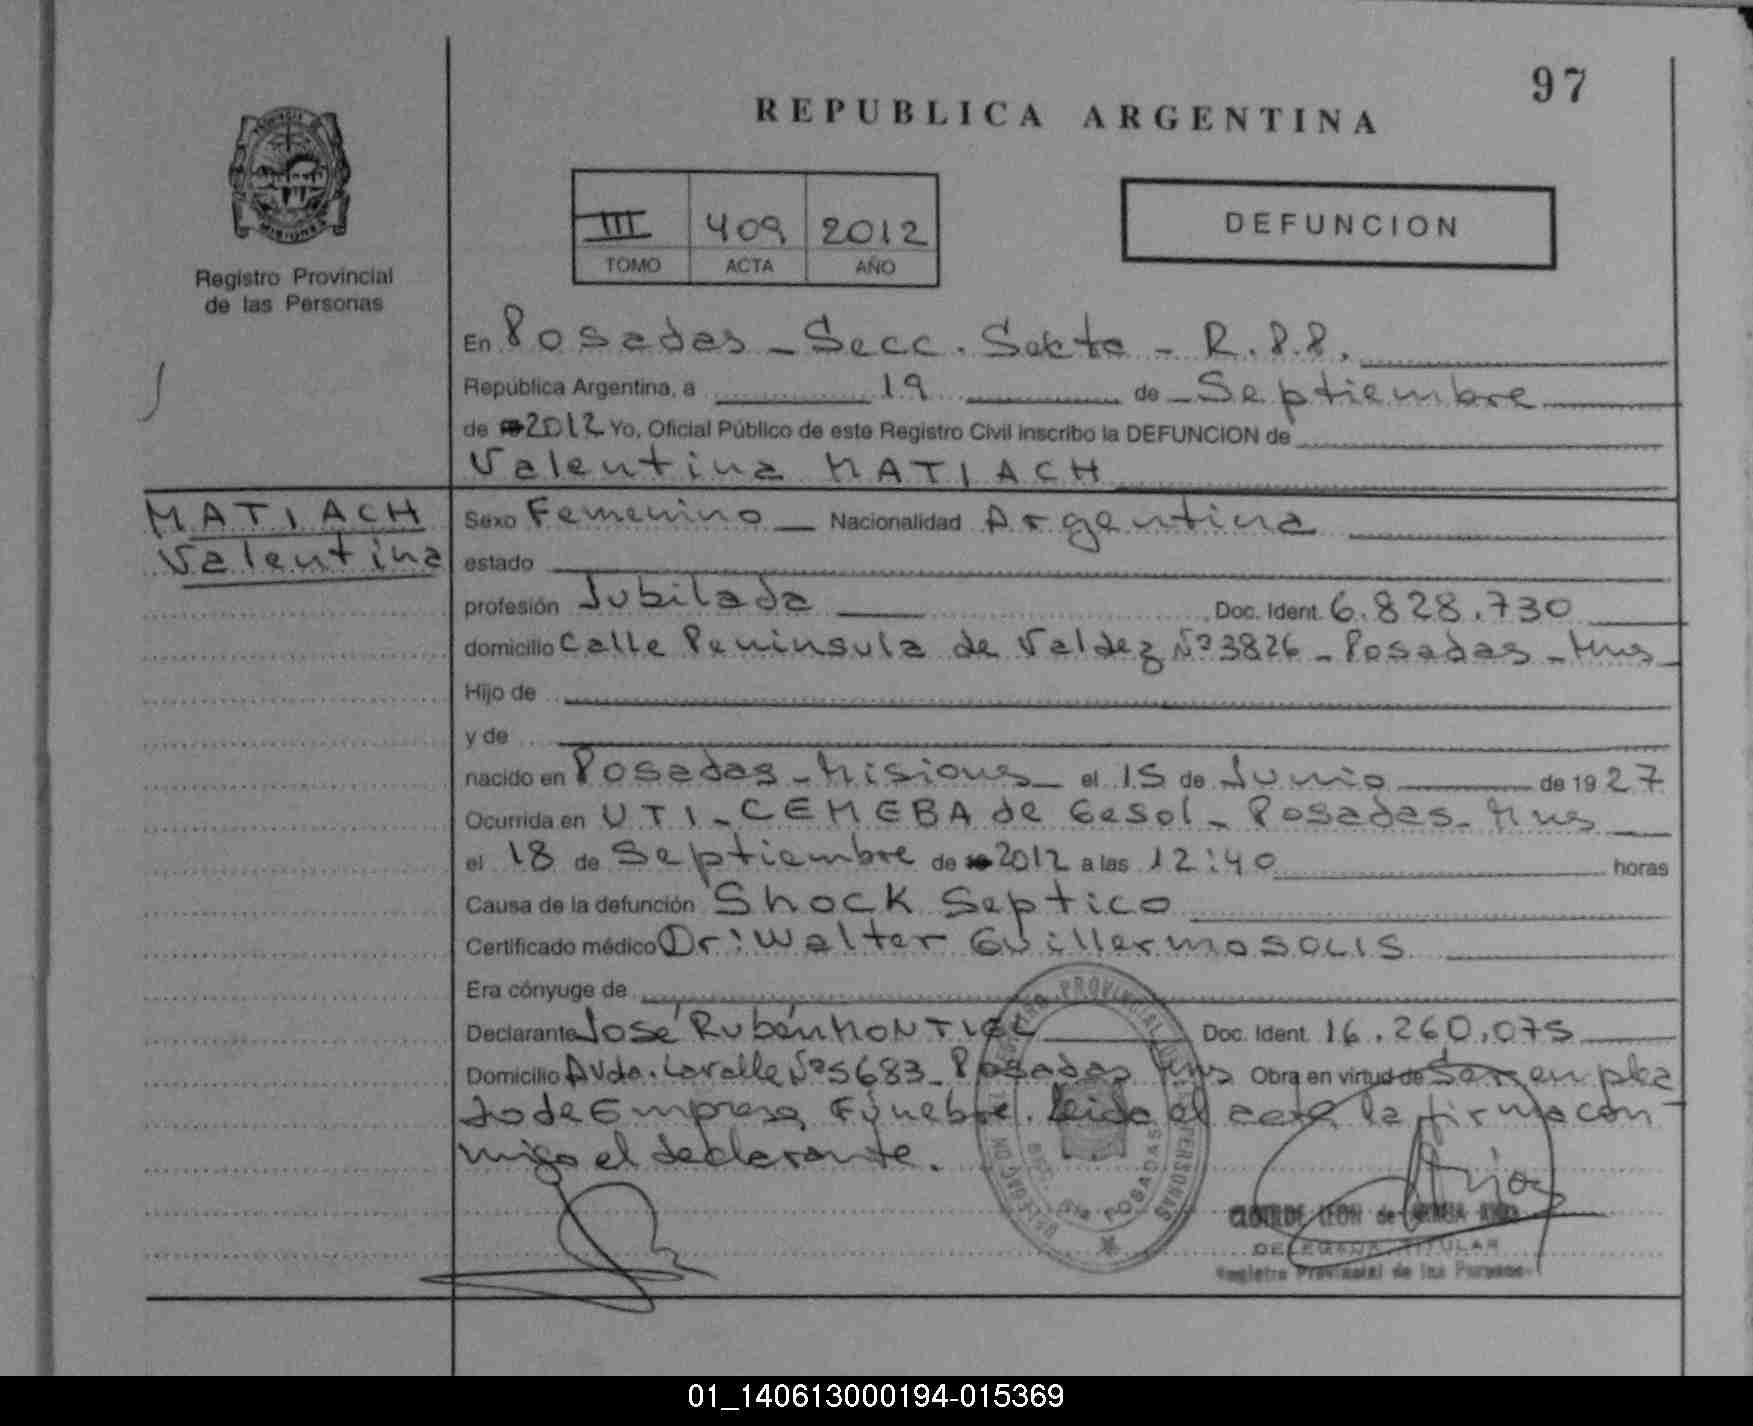 97
REPUBLICA ARGENTINA
III 409 2012
TOMO ACTA AÑO
DEFUNCION
Registro Provincial
de las Personas
En Posadas - Secc. Sexta - R.P.P.
República Argentina, a 19 de Septiembre
de 2012 Yo, Oficial Público de este Registro Civil inscribo la DEFUNCION de
Valentina MATIACH
MATIACH
Valentina
Sexo Femenino Nacionalidad Argentina
estado
profesión Jubilada Doc. Ident. 6.828.730
domicilio Calle Peninsula de Valdez Nº 3826 - Posadas - Mns
Hijo de
y de
nacido en Posadas - Misiones el 15 de Junio de 1927
Ocurrida en UTI - CEMEBA de Gesol - Posadas - Mns
el 18 de Septiembre de 2012 a las 12:40 horas
Causa de la defunción Shock Septico
Certificado médico Dr: Walter Guillermo SOLIS
Era cónyuge de
Declarante José Rubén MONTIEL Doc. Ident. 16.260.075
Domicilio Avda. Lavalle Nº 5683 - Posadas Mns Obra en virtud de Ser emplea
do de Empresa Fúnebre. Leida el acta la firma con
migo el declarante.
REGISTRO PROVINCIAL DE LAS PERSONAS
DELEGACION
SECC. 6ta POSADAS
CLOTILDE LEON de
DELEGADA TITULAR
Registro Provincial de las Personas
01_140613000194-015369